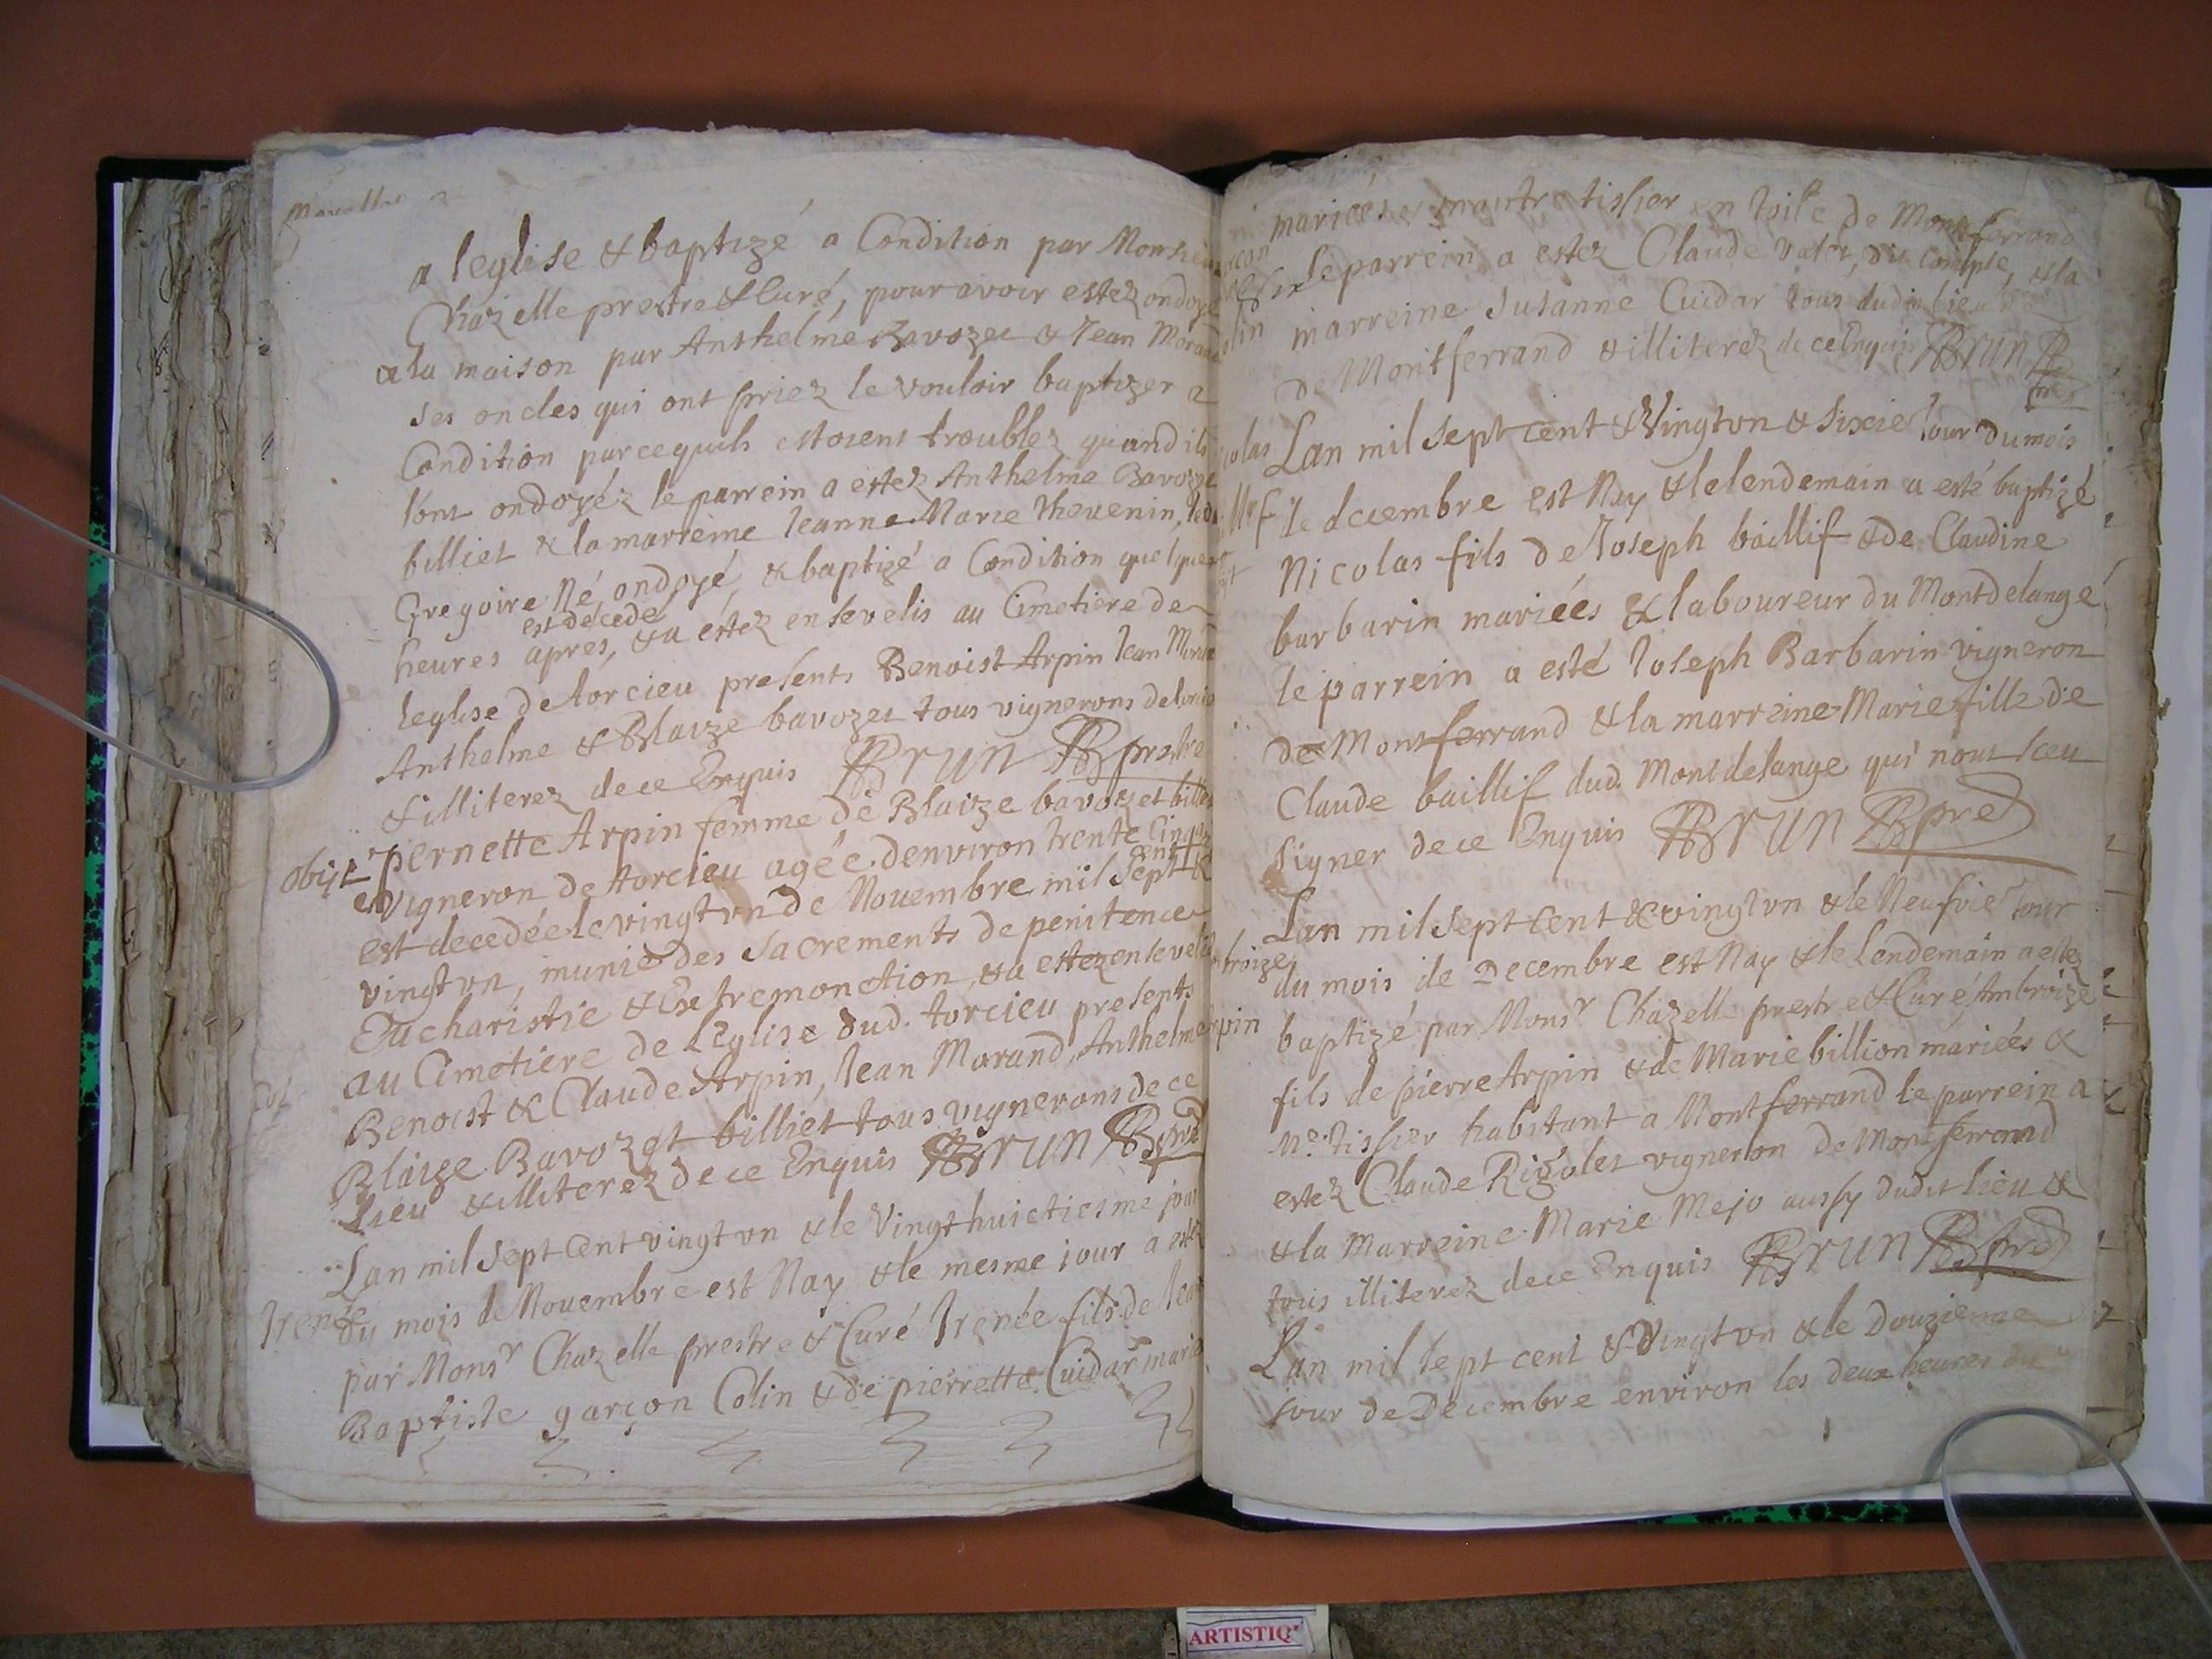 a leglise & baptizé a Condition par Monsieur
Chazelle prestre & Curé, pour avoir estez ondoyé
a la maison par Anthelme Bavozet & Jean Morand
ses oncles qui ont priez le vouloir baptizer a
Condition parcequils estoient troublez quand ils
lont ondoyéz le parrein a estez Anthelme Bavozet
billiet & la marreine Jeanne Marie Thevenin, led
Gregoire Né ondoyé, & baptizé a Condition quelques
est décédé
heures apres, & a estez ensevelis au Cimetiere de
leglise de torcieu presents Benoist Arpin Jean Morand
Anthelme & Blaize bavozet tous vignerons
& illiterez de ce Enquis Brun prestre
obijt pernette Arpin femme de Blaize bavozet billiet
vigneron de torcieu agée denviron trente Cinq
est decedée le vingt vn de Nouembre mil Sept Cent &
vingt vn, munie des Sacrements de penitence
Eucharistie & Extremonction, & a estez ensevelie
au Cimetiere de leglise dud. torcieu presents
Benoist & Claude Arpin, Jean Morand, Anthelme
Blaize Bavozet billiet tous vignerons de ce
Lieu & illiterez de ce Enquis Brun pre
Lan mil Sept Cent vingt vn & le Vingt huictiesme jour
Irenée du mois de Nouembre est Nay & le mesme jour a estez
par Monsr Chazelle prestre & Curé Irenée fils de Jean
Baptiste garçon Colin & de pierrette Cuidar mariés
mariées maitre tissier en toile de Montferrand
le parrein a estez Claude Vater, dit Compte, & la
marreine Susanne Cuidar tous dudit lieu
de Montferrand & illiterez de ce Enquis Brun
Lan mil Sept cent & Vingt vn & Sixie Jour du mois
de decembre est Nay & le lendemain a esté baptizé
Nicolas fils de Joseph baillif & de Claudine
barbarin mariées & laboureur du Montdelange
le parrein a esté Joseph Barbarin vigneron
de Montferrand & la marreine Marie fille de
Claude baillif dud. Montdelange qui nont sceu
signer de ce Enquis Brun pre
Lan mil Sept cent & vingt vn & le Neufvie Jour
du mois de Decembre est Nay & le Lendemain a estez
baptizé par Monsr Chazelle prestre & Curé Ambroize
fils de pierre Arpin & de Marie billion mariées &
Me. tissier habitant a Montferrand le parrein a
estez Claude Rigolet vigneron de Montferrand
& la Marreine Marie Mejo aussy dudit lieu &
tous illiterez de ce Enquis Brun pre
Lan mil sept cent & Vingt vn & le Douzieme
Jour de Decembre environ les deux heures du
ARTISTIQ